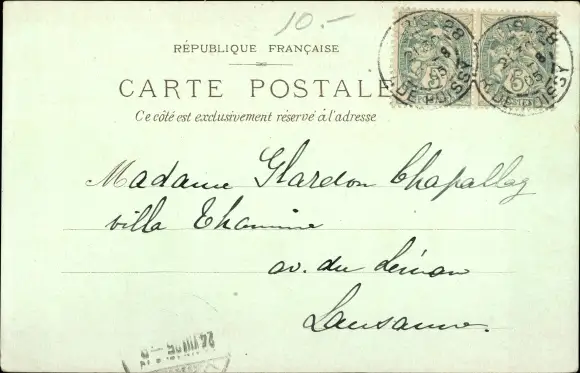 10.-
RÉPUBLIQUE FRANÇAISE
CARTE POSTALE
Ce côté est exclusivement réservé à l'adresse
Madame Glardon Chapallaz
villa
av. du Léman
Lausanne.
24 VIII 05